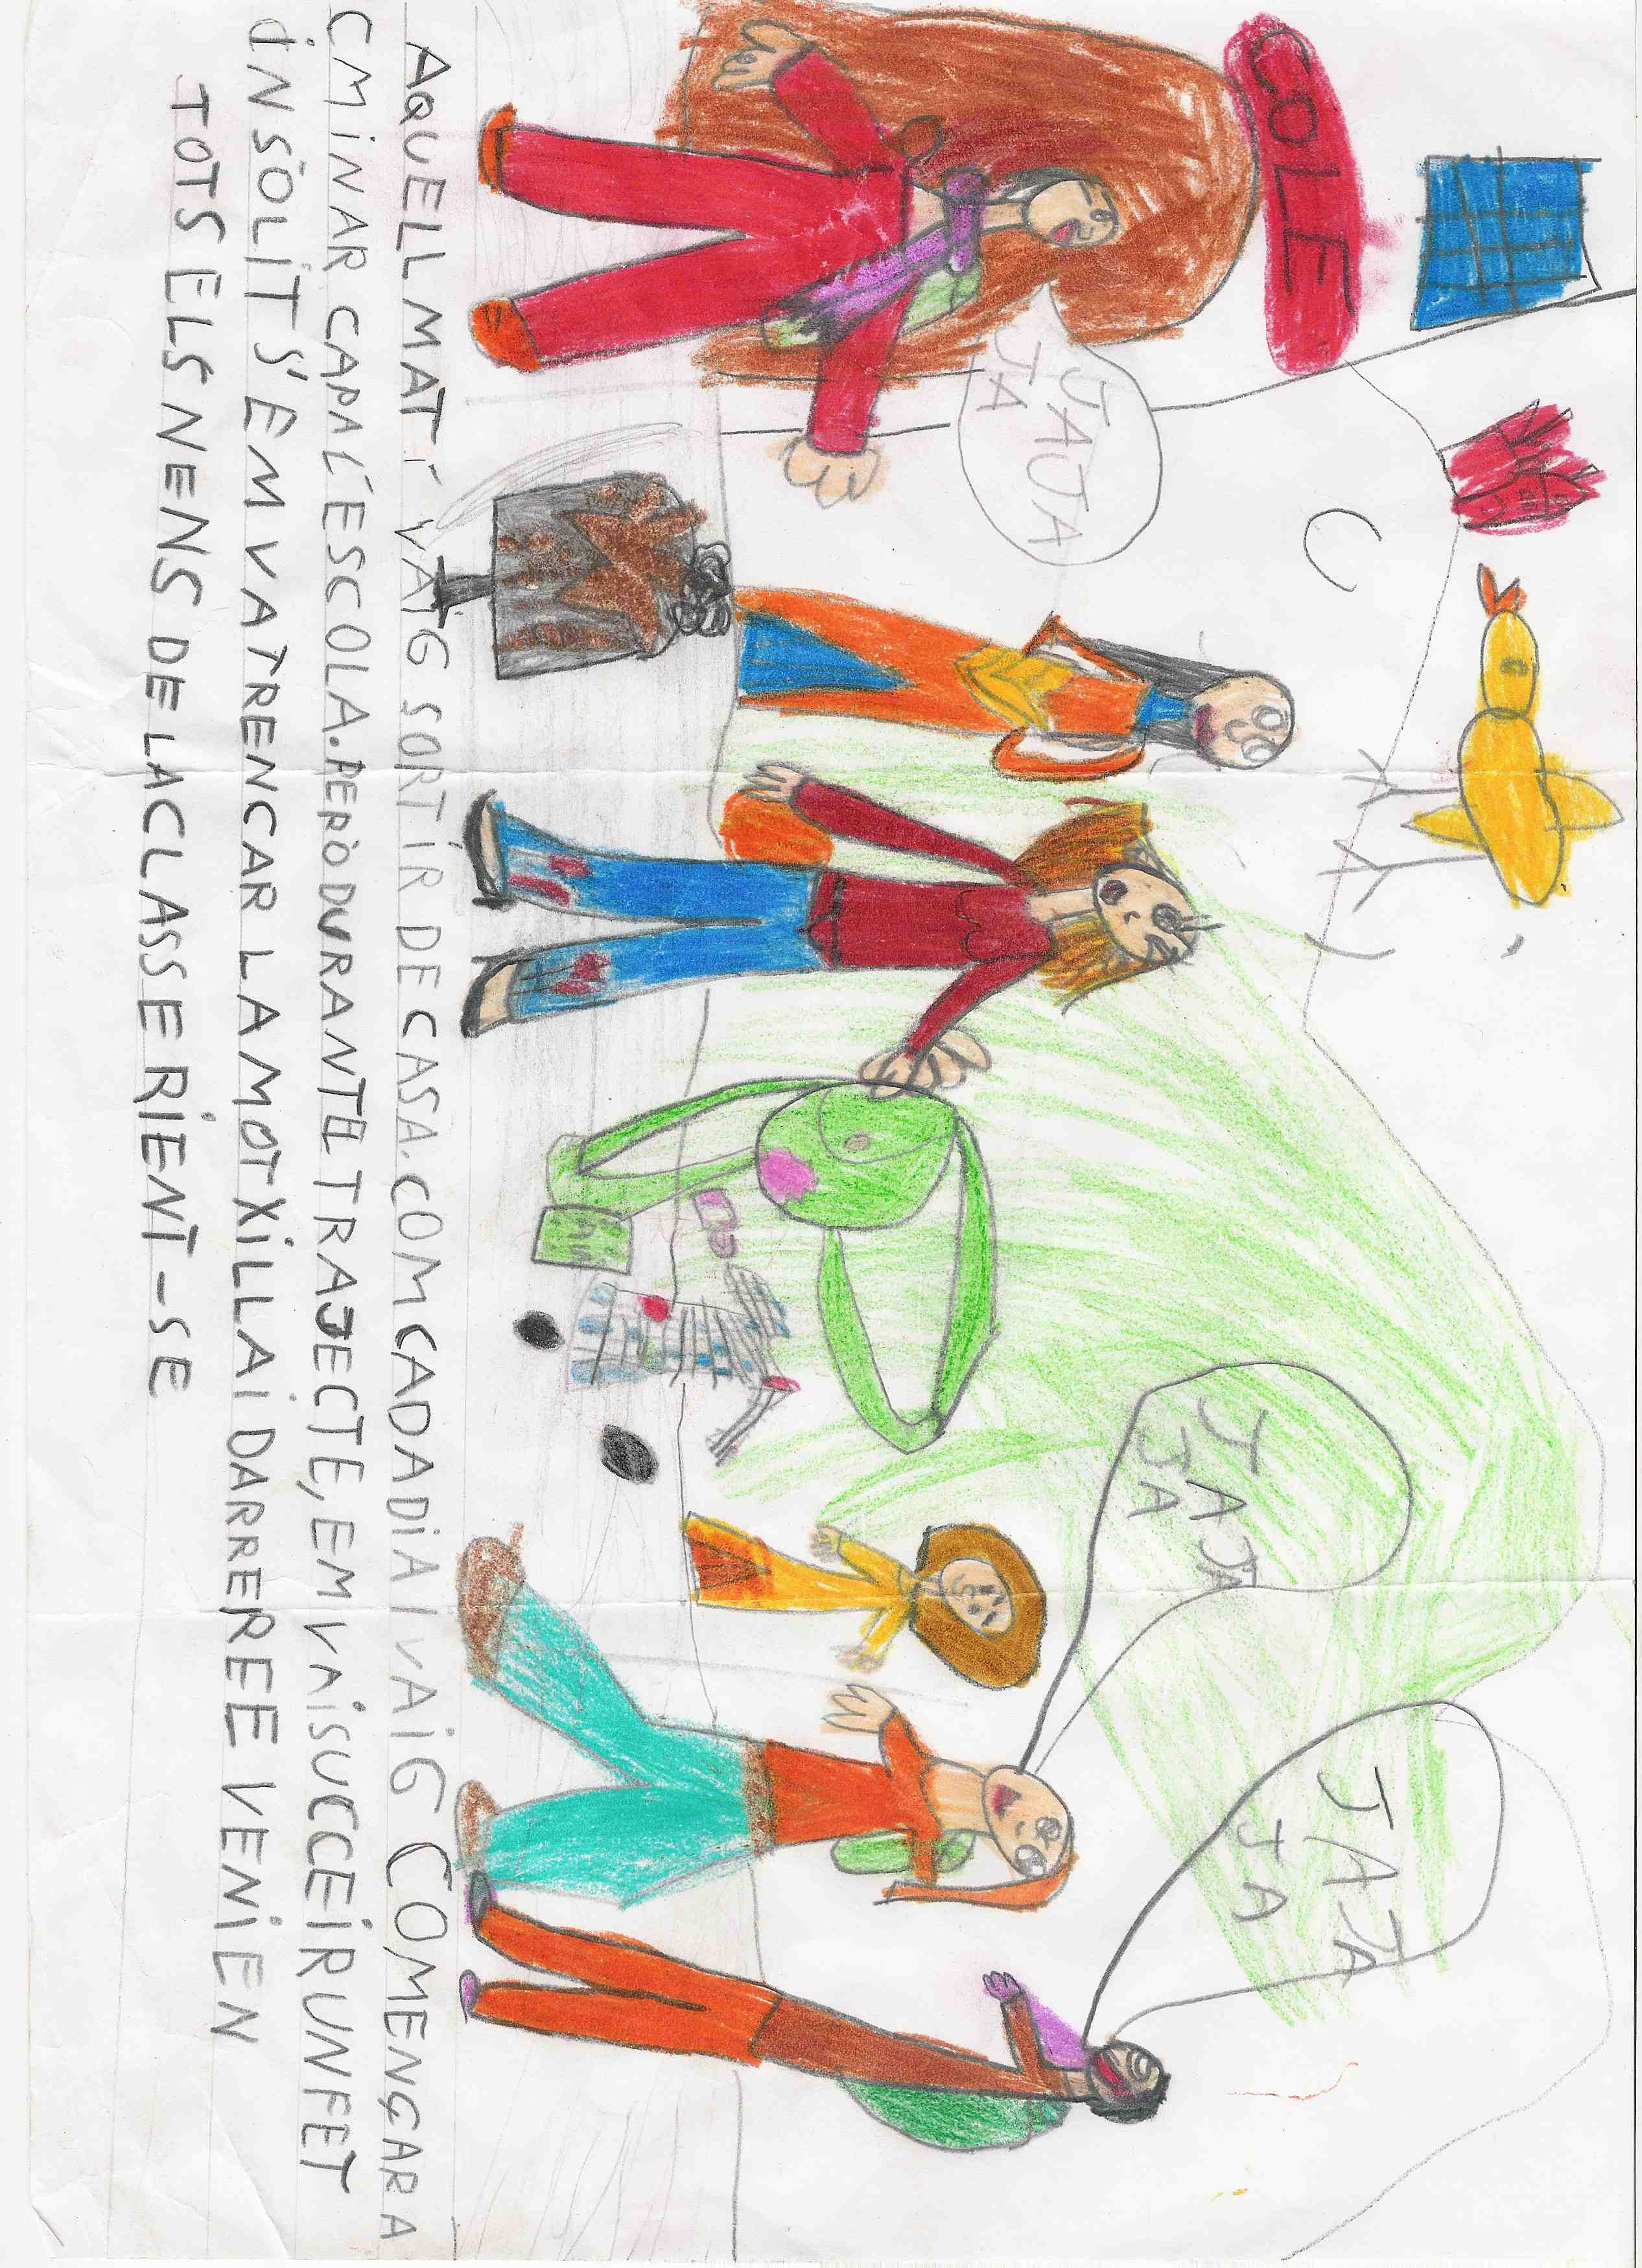 COLE
JAJAJA
JA
JAJA
JA
JAJA
JA
AQUELL MATI VAIG SORTIR DE CASA. COM CADA DIA I VAIG COMENÇAR A
CMINAR CAP A L'ESCOLA. PERÒ DURANT EL TRAJECTE, EM VAI SUCCEIR UN FET
INSÒLIT S'EM VA TRENCAR LA MOTXILLA I DARRERE E VENIEN
TOTS ELS NENS DE LA CLASSE RIENT-SE